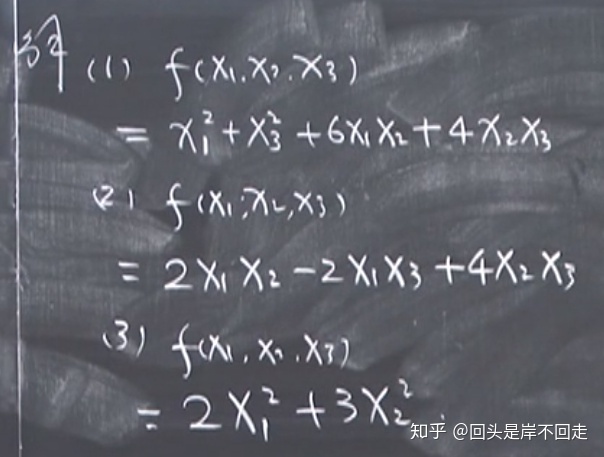 例 (1) f(x₁,x₂,x₃)
= x₁² + x₃² + 6x₁x₂ + 4x₂x₃
(2) f(x₁,x₂,x₃)
= 2x₁x₂ - 2x₁x₃ + 4x₂x₃
(3) f(x₁,x₂,x₃)
= 2x₁² + 3x₂²
知乎 @回头是岸不回走